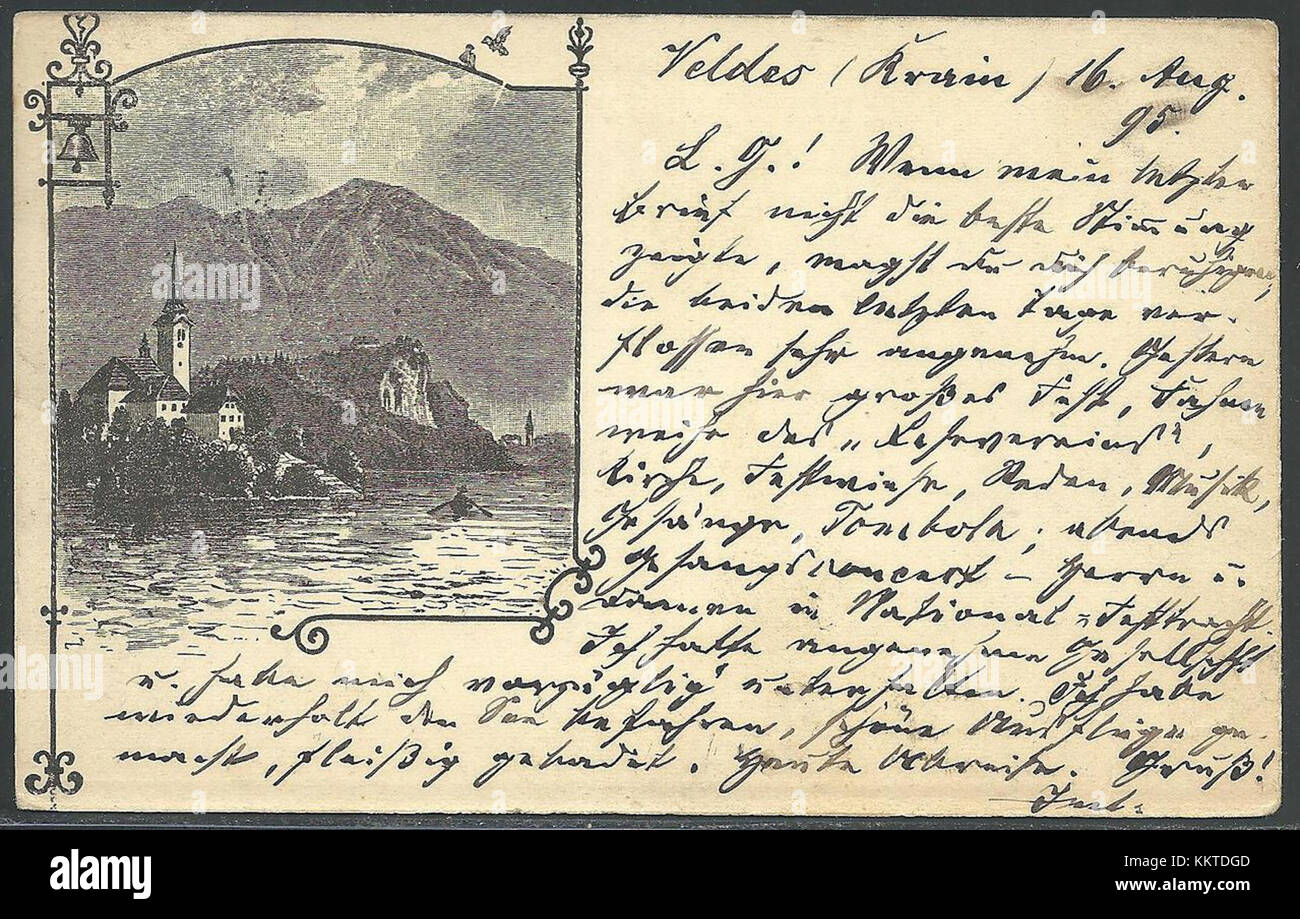 Veldes (Krain) 16. Aug.
95.
L. G.! Wenn mein letzter
Brief nicht die beste Stimmung
zeigte, magst du dich beruhigen,
die beiden letzten Tage ver-
flossen sehr angenehm. Gestern
war hier großes Fest, Fahnen
weihe des „Lehrvereins“,
Kirche, Festwiese, Reden, Musik,
Gesänge, Tombola, abends
Gesangsconcert – Herrn u.
Damen in National-Festtracht.
Ich hatte angenehme Gesellschft
u. habe mich vorzüglig unterhalten. Ich habe
wiederholt den See befahren, schöne Ausflüge ge-
macht, fleißig gebadet. Heute Abreise. Gruß!
a alamy stock photo
alamy
Image ID: KKTDGD
www.alamy.com